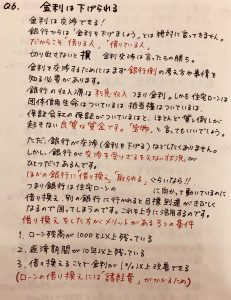 Q6. 金利は下げられる
金利は交渉できる！
銀行からは「金利を下げましょう」とは絶対に言ってきません。
だからこそ「借りる人」、「借りている人」
切り出さないと損 金利交渉は言ったもの勝ち。
金利を交渉するためにはまず銀行側の考え方や事情を
知る必要があります。
銀行の収入源は利息収入つまり金利。しかも住宅ローンは
団体信用生命はついている担当権はついている、
保証会社の保証がついているなど、ほとんど貸し倒しが
起きない良質な資金です。"宝物"と言ってもいいでしょう。
ただ、銀行が交渉(金利を下げる)などしたくありません。
しかし、銀行が交渉を受けざるをえない状況が
ひとつだけあるんです。
ほかの銀行に借り換え「取られる」ぐらいなら!!
つまり銀行は住宅ローンの に向かって動いているのに
借り換え、別の銀行に行かれると目標到達ができなく
なるので困ってしまうのです。これを上手に活用するのです。
借り換えをした方がメリットがある3つの条件
1. ローン残高が1000万以上残っている
2. 返済期間が10年以上残っている
3. 借り換えることで金利が1%以上改善できる
(ローンの借り換えには「諸経費」がかかるため)